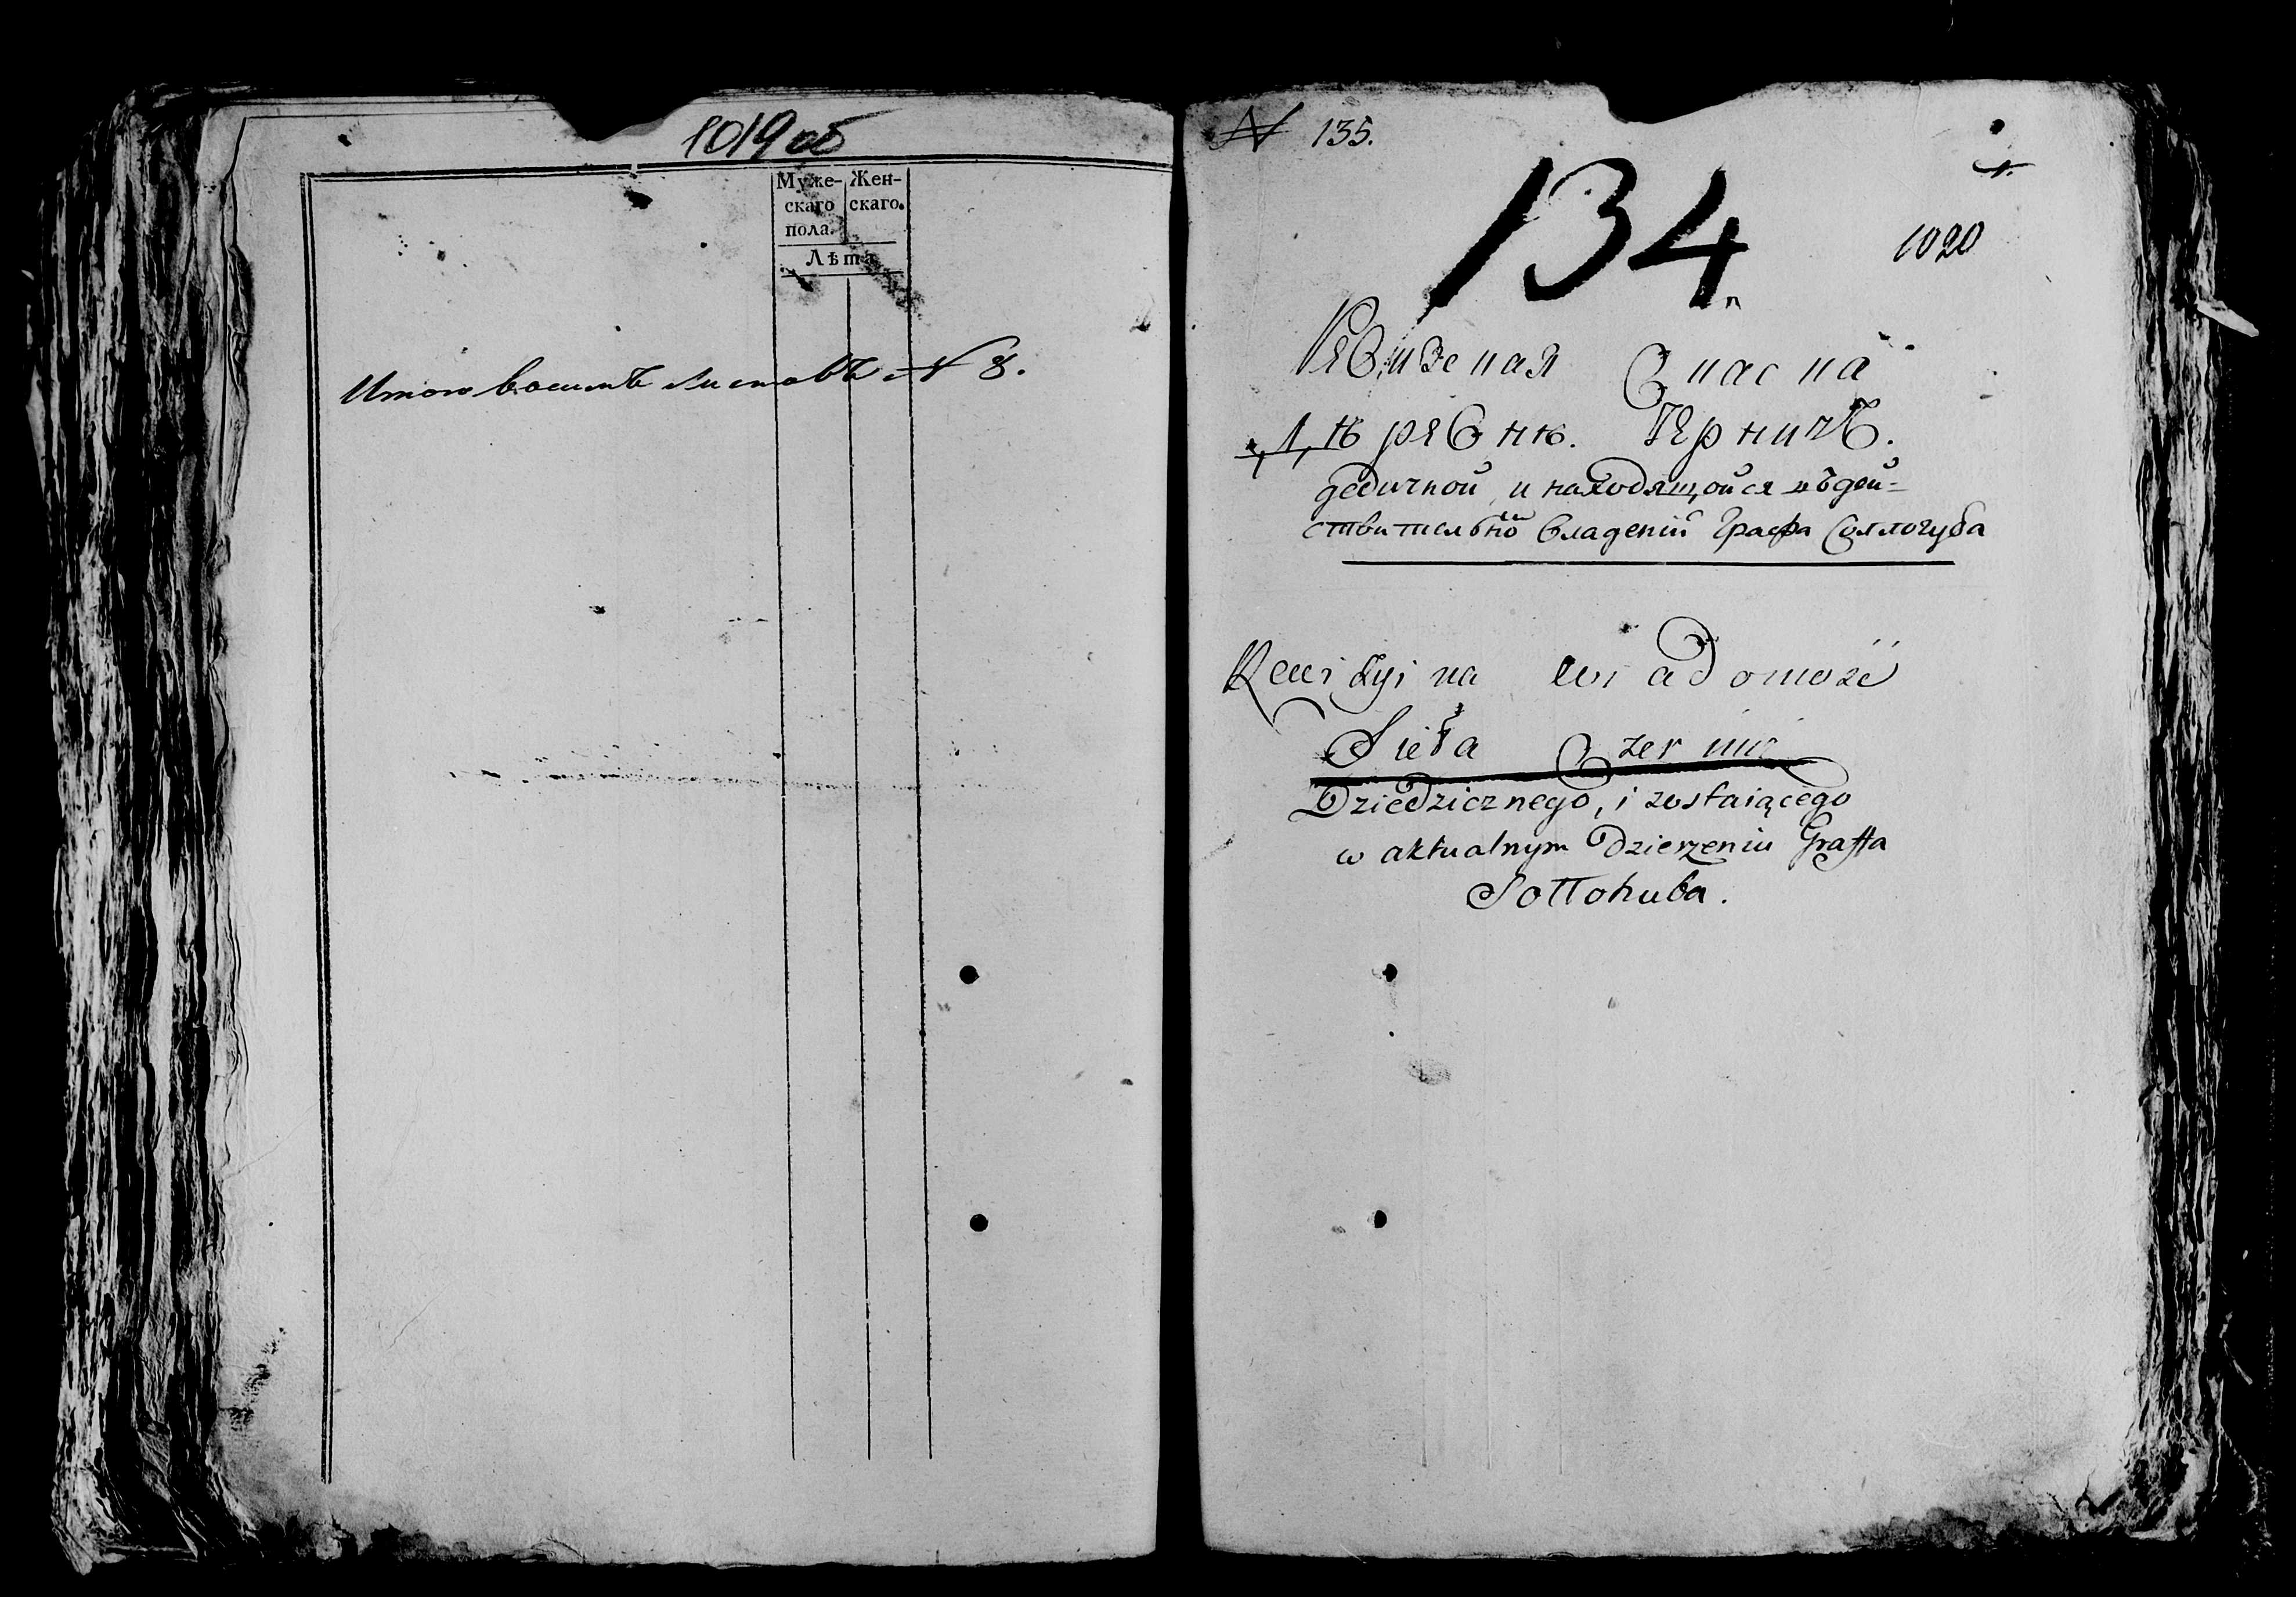 1019 об
Муже- Жен-
скаго скаго.
пола.
Лѣта
Итого восемь листовъ № 8.
№ 135.
1.
134
1020
Ревизская
Дѣревнѣ.
дедичной и находящойся въ дей-
ствительной владении Графа Соллогуба
Rewizyina wiadomość
Sieła Czernic
Dziedzicznego, i zostaiącego
w aktualnym Dzierzeniu Graffa
Sołłohuba.